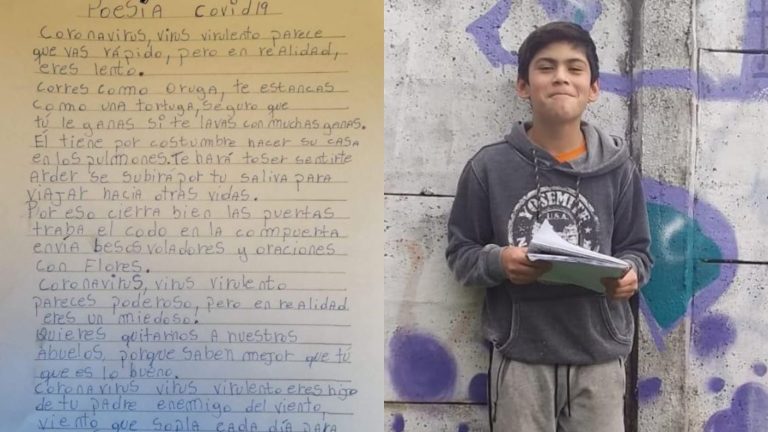 POESÍA Covid19
Coronavirus, virus virulento parece
que vas rápido, pero en realidad,
eres lento.
Corres como oruga, te estancas
como una tortuga, seguro que
tú le ganas si te lavas con muchas ganas.
Él tiene por costumbre hacer su casa
en los pulmones. Te hará toser sentirte
Arder se subirá por tu saliva para
viajar hacia otras vidas.
Por eso cierra bien las puertas
traba el codo en la compuerta
envía besos voladores y oraciones
con flores.
Coronavirus, virus virulento
pareces poderoso, pero en realidad
eres un miedoso.
Quieres quitarnos a nuestros
Abuelos, porque saben mejor que tú
que es lo bueno.
Coronavirus virus virulento eres hijo
de tu padre enemigo del viento,
viento que sopla cada día para
YOSEMITE
U.S.A.